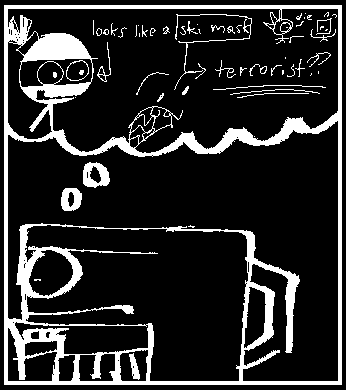 looks like a ski mask
die
terrorist??